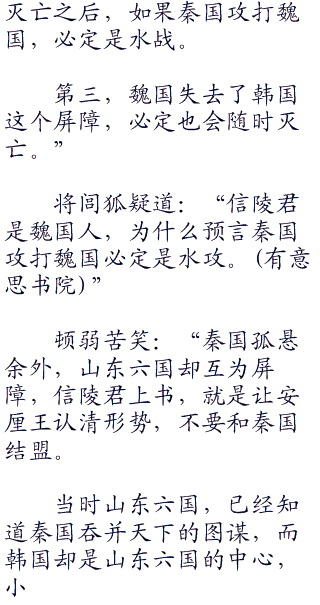 灭亡之后，如果秦国攻打魏
国，必定是水战。
第三，魏国失去了韩国
这个屏障，必定也会随时灭
亡。”
将闾狐疑道：“信陵君
是魏国人，为什么预言秦国
攻打魏国必定是水攻。(有意
思书院)”
顿弱苦笑：“秦国孤悬
余外，山东六国却互为屏
障，信陵君上书，就是让安
厘王认清形势，不要和秦国
结盟。
当时山东六国，已经知
道秦国吞并天下的图谋，而
韩国却是山东六国的中心，
小